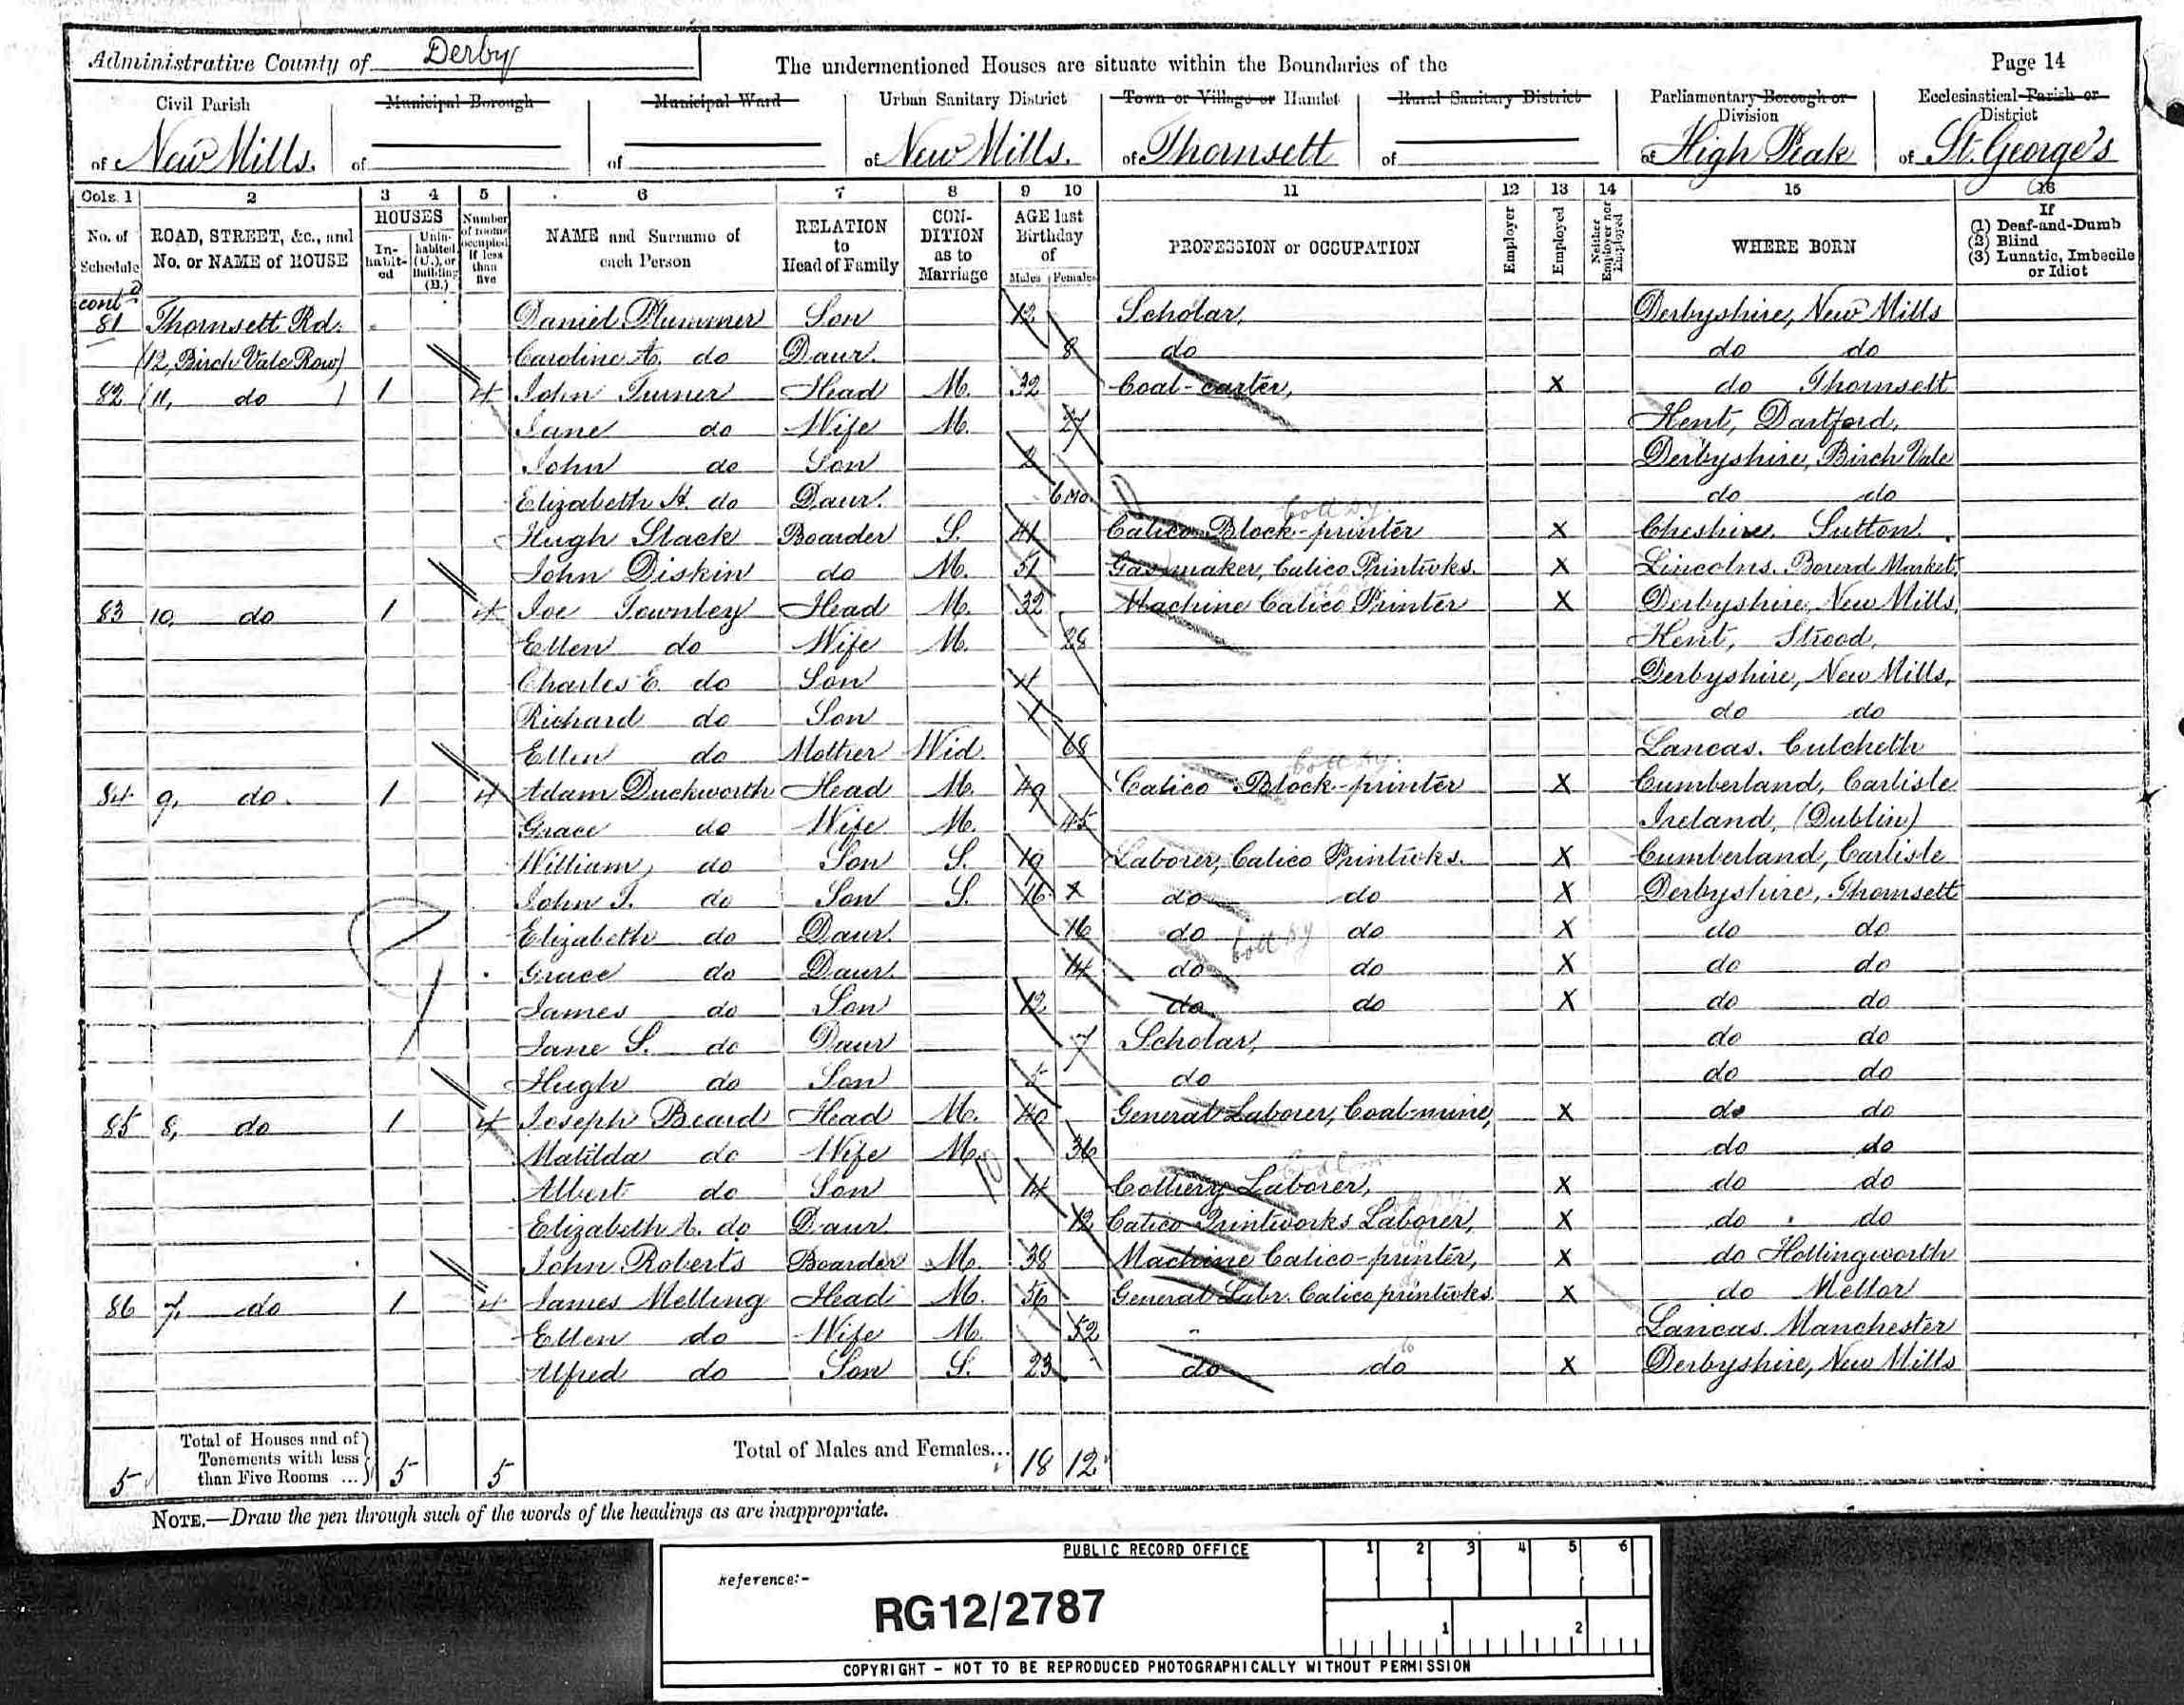 Administrative County of Derby
The undermentioned Houses are situate within the Boundaries of the
Page 14
Civil Parish of New Mills.
Municipal Borough of
Municipal Ward of
Urban Sanitary District of New Mills.
Town or Village or Hamlet of Thornsett
Rural Sanitary District of
Parliamentary Borough or Division of High Peak
Ecclesiastical Parish or District of St. George's
Cols. 1 2 3 4 5 6 7 8 9 10 11 12 13 14 15 16
No. of Schedule
ROAD, STREET, &c., and No. or NAME of HOUSE
HOUSES
Inhabited
Uninhabited (U.), or Building (B.)
Number of rooms occupied if less than five
NAME and Surname of each Person
RELATION to Head of Family
CONDITION as to Marriage
AGE last Birthday of
Males Females
PROFESSION or OCCUPATION
Employer
Employed
Neither Employer nor Employed
WHERE BORN
If
(1) Deaf-and-Dumb
(2) Blind
(3) Lunatic, Imbecile or Idiot
contd
81 Thornsett Rd. Daniel Plummer Son 12 Scholar, Derbyshire, New Mills
(12, Birch Vale Row) Caroline A. do Daur. 8 do do do
82 (11, do ) 1 4 John Turner Head M. 32 Coal-carter, X do Thornsett
Jane do Wife M. 27 Kent, Dartford,
John do Son 2 Derbyshire, Birch Vale
Elizabeth H. do Daur. 6 mo. do do
Hugh Slack Boarder S. 41 Calico Block-printer X Cheshire. Sutton.
John Diskin do M. 51 Gas maker, Calico Printwks. X Lincolns. Market
83 10, do 1 4 Joe Townley Head M. 32 Machine Calico Printer X Derbyshire, New Mills,
Ellen do Wife M. 28 Kent, Strood,
Charles E. do Son 4 Derbyshire, New Mills,
Richard do Son 1 do do
Ellen do Mother Wid. 68 Lancas. Culcheth
84 9, do. 1 4 Adam Duckworth Head M. 49 Calico Block-printer X Cumberland, Carlisle
Grace do Wife M. 45 Ireland, (Dublin)
William, do Son S. 19 Laborer, Calico Printwks. X Cumberland, Carlisle
John T. do Son S. 16 X do do X Derbyshire, Thornsett
Elizabeth do Daur. 16 do do X do do
Grace do Daur. 14 do do X do do
James do Son 12 do do X do do
Jane S. do Daur 7 Scholar, do do
Hugh do Son 5 do do do
85 8, do 1 4 Joseph Beard Head M. 40 General Laborer, Coal-mine, X do do
Matilda do Wife M. 36 do do
Albert do Son 14 Colliery Laborer, X do do
Elizabeth A. do Daur. 12 Calico Printworks Laborer, X do do
John Roberts Boarder M. 38 Machine Calico-printer, X do Hollingworth
86 7, do 1 4 James Melling Head M. 56 General Labr. Calico printwks. X do Mellor
Ellen do Wife M. 52 Lancas. Manchester
Alfred do Son S. 23 do do X Derbyshire, New Mills
5 Total of Houses and of Tenements with less than Five Rooms ... 5 5 Total of Males and Females... 18 12
NOTE.—Draw the pen through such of the words of the headings as are inappropriate.
PUBLIC RECORD OFFICE
Reference:-
RG12/2787
1 2 3 4 5 6
1 2
COPYRIGHT - NOT TO BE REPRODUCED PHOTOGRAPHICALLY WITHOUT PERMISSION